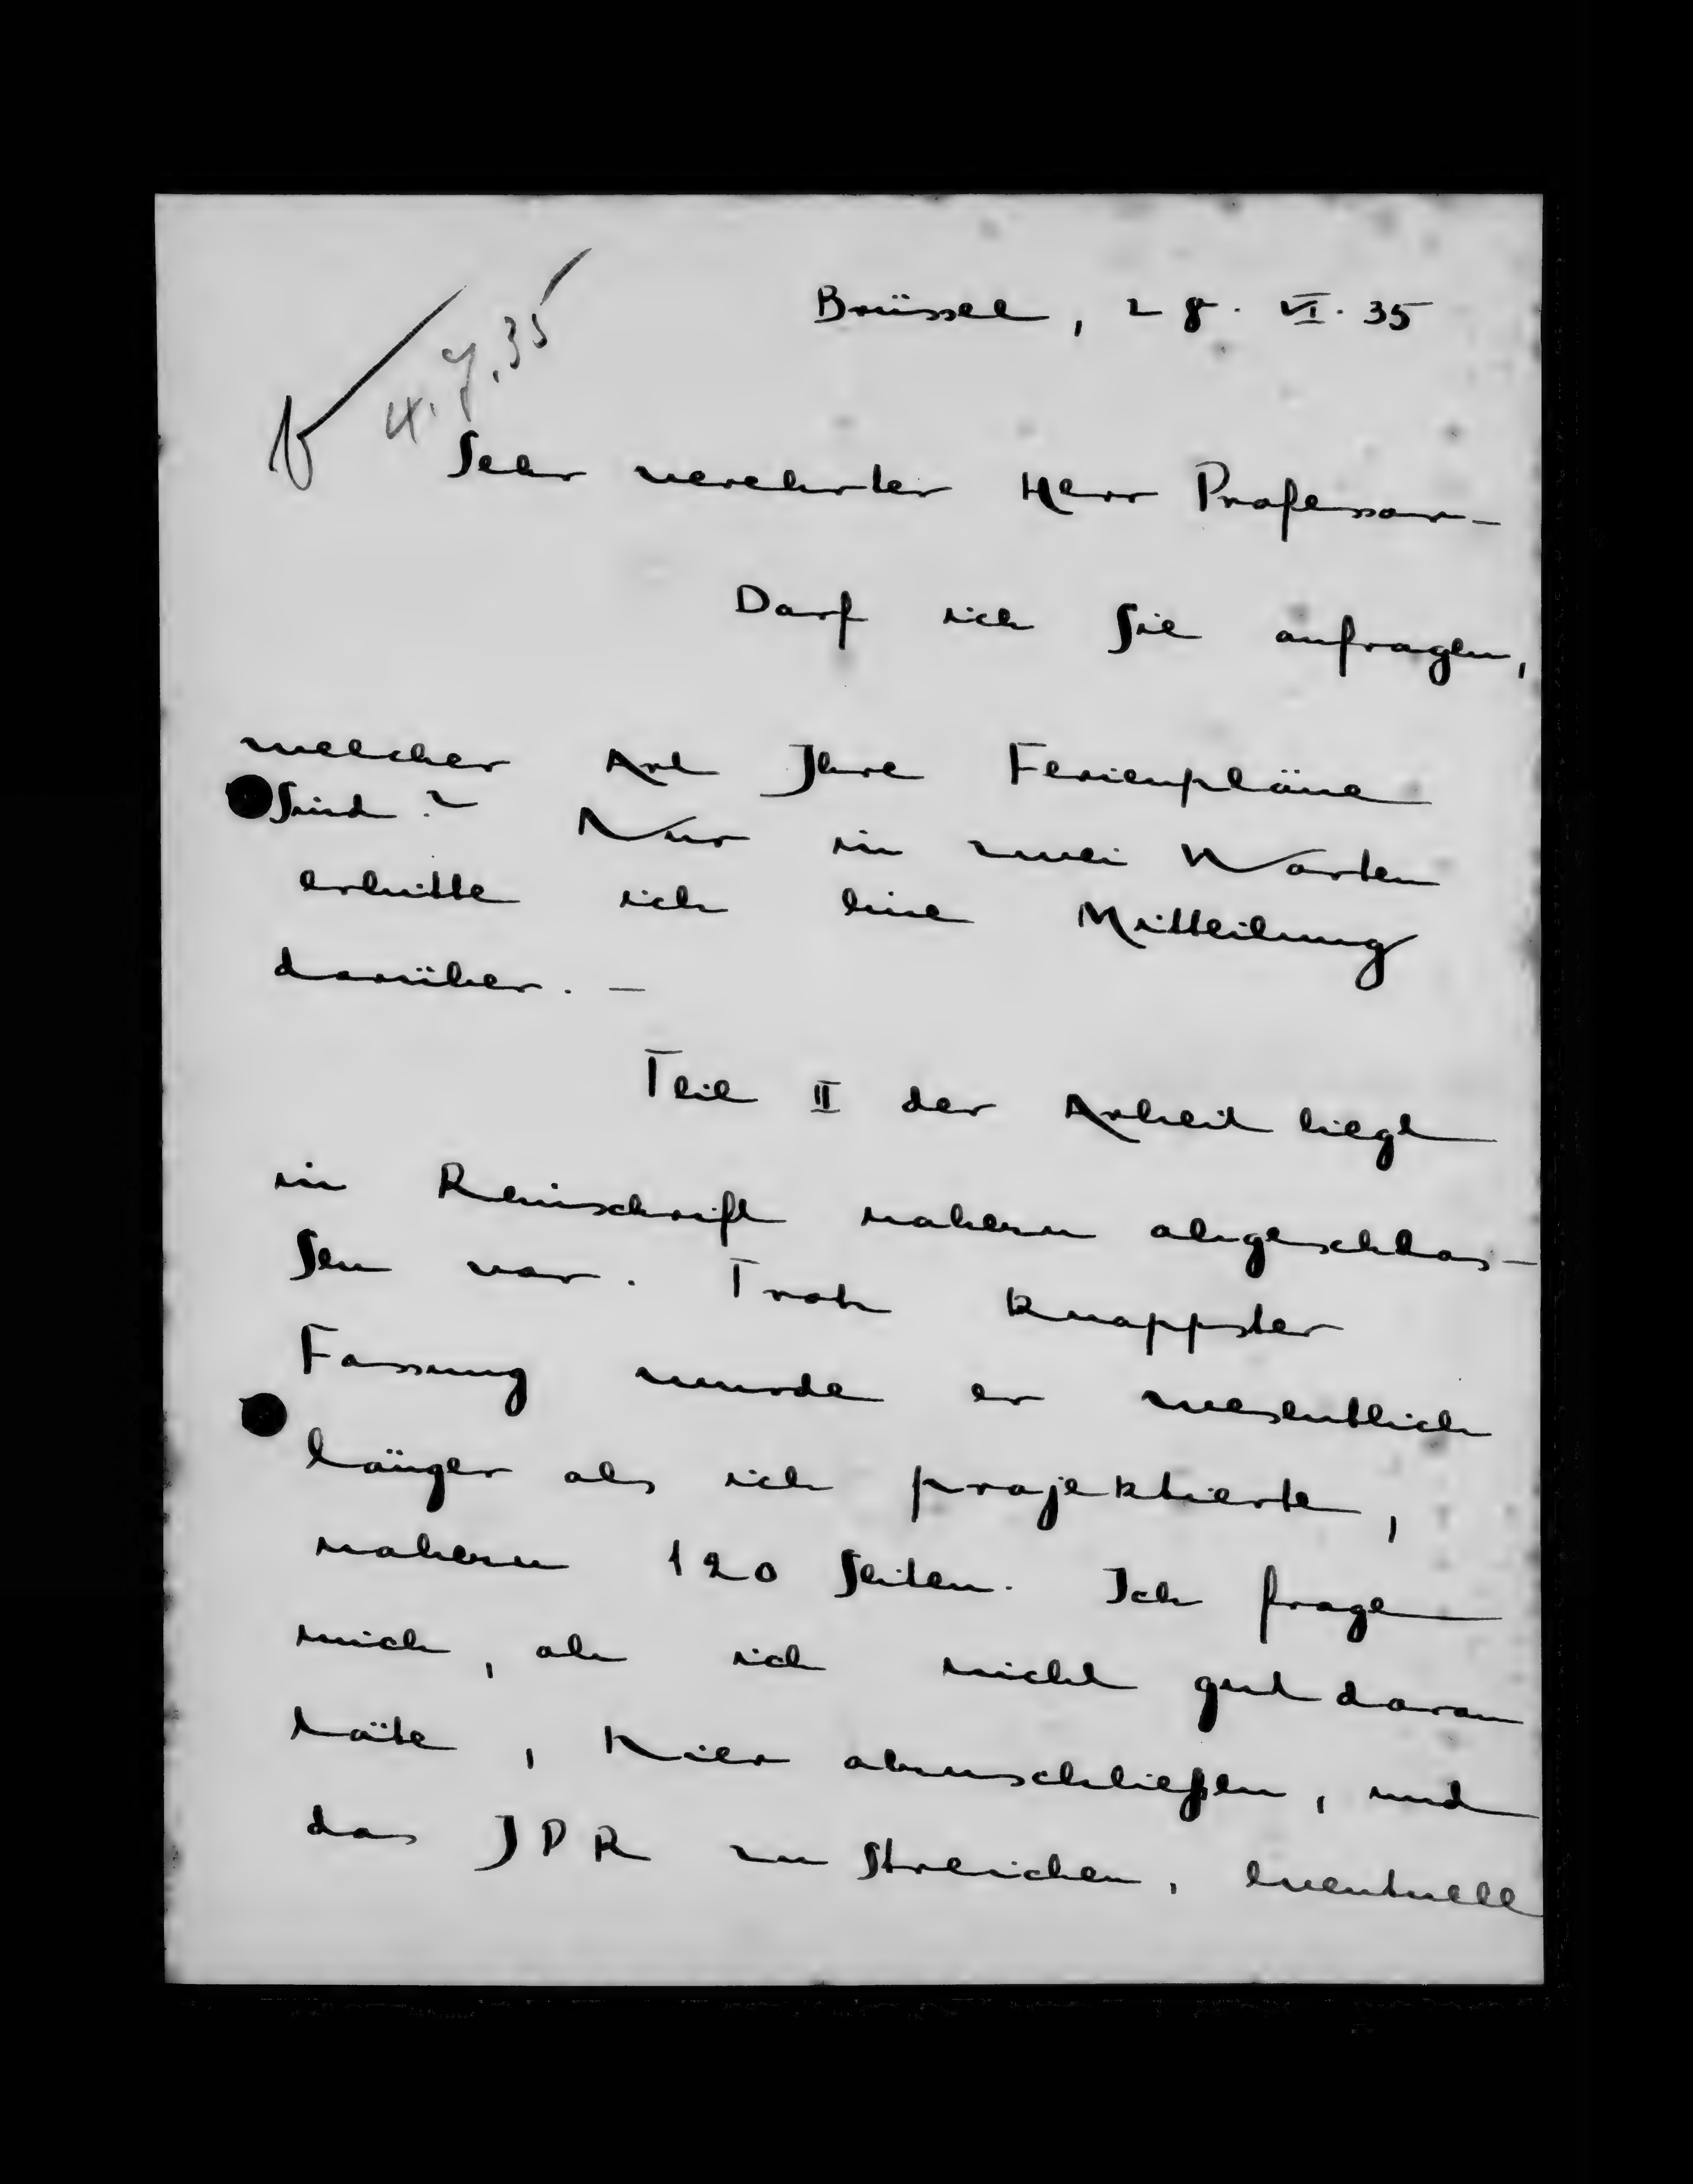 Brüssel, 28. VI. 35
4. 7. 35
Sehr verehrter Herr Professor –
Darf ich Sie anfragen,
welcher Art Ihre Ferienpläne
sind? Nur in zwei Worten
erbitte ich eine Mitteilung
darüber. –
Teil II der Arbeit liegt
in Reinschrift nahezu abgeschlos-
sen vor. Trotz knappster
Fassung wurde er wesentlich
länger als ich projektierte,
nahezu 120 Seiten. Ich frage
mich, ob ich nicht gut daran
täte, hier abzuschließen, und
das JPR zu streichen, eventuell